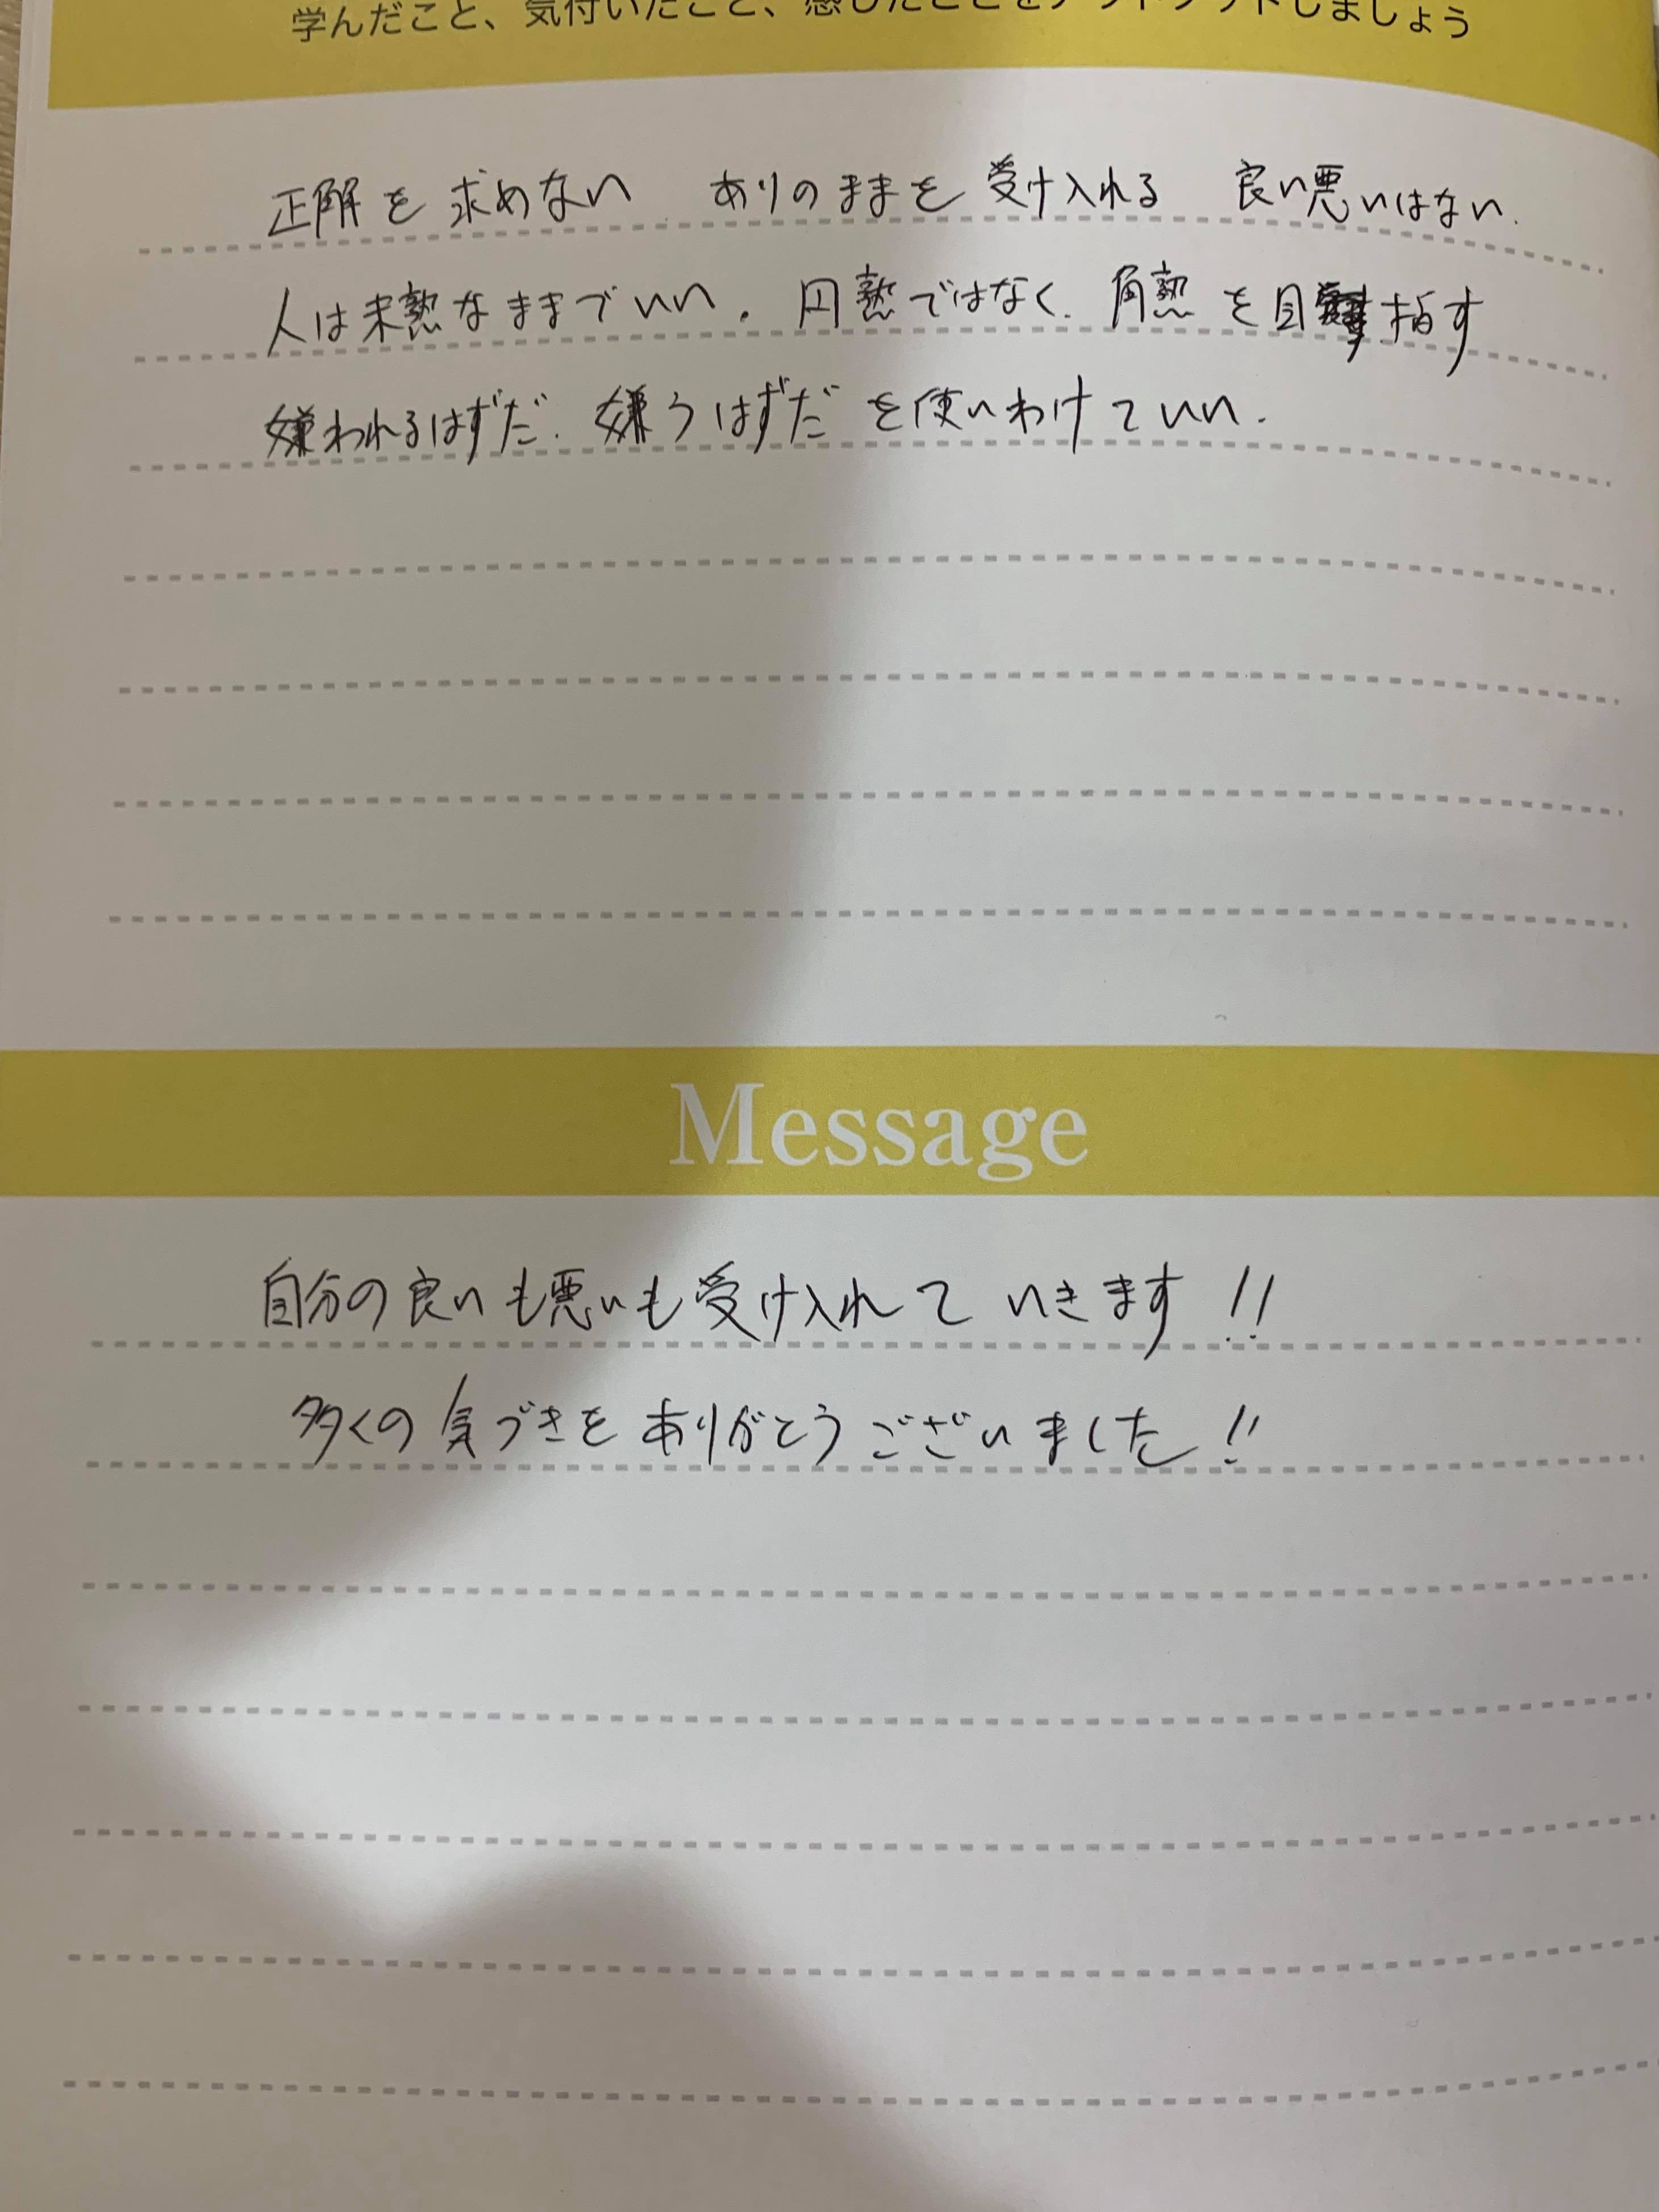 学んだこと、気付いたこと、感じたことをアウトプットしましょう
正解を求めない ありのままを受け入れる 良い悪いはない.
人は未熟なままでいい。円熟ではなく、角熟を目指す
嫌われるはずだ、嫌うはずだを使いわけていい.
Message
自分の良いも悪いも受け入れていきます!!
多くの気づきをありがとうございました!!